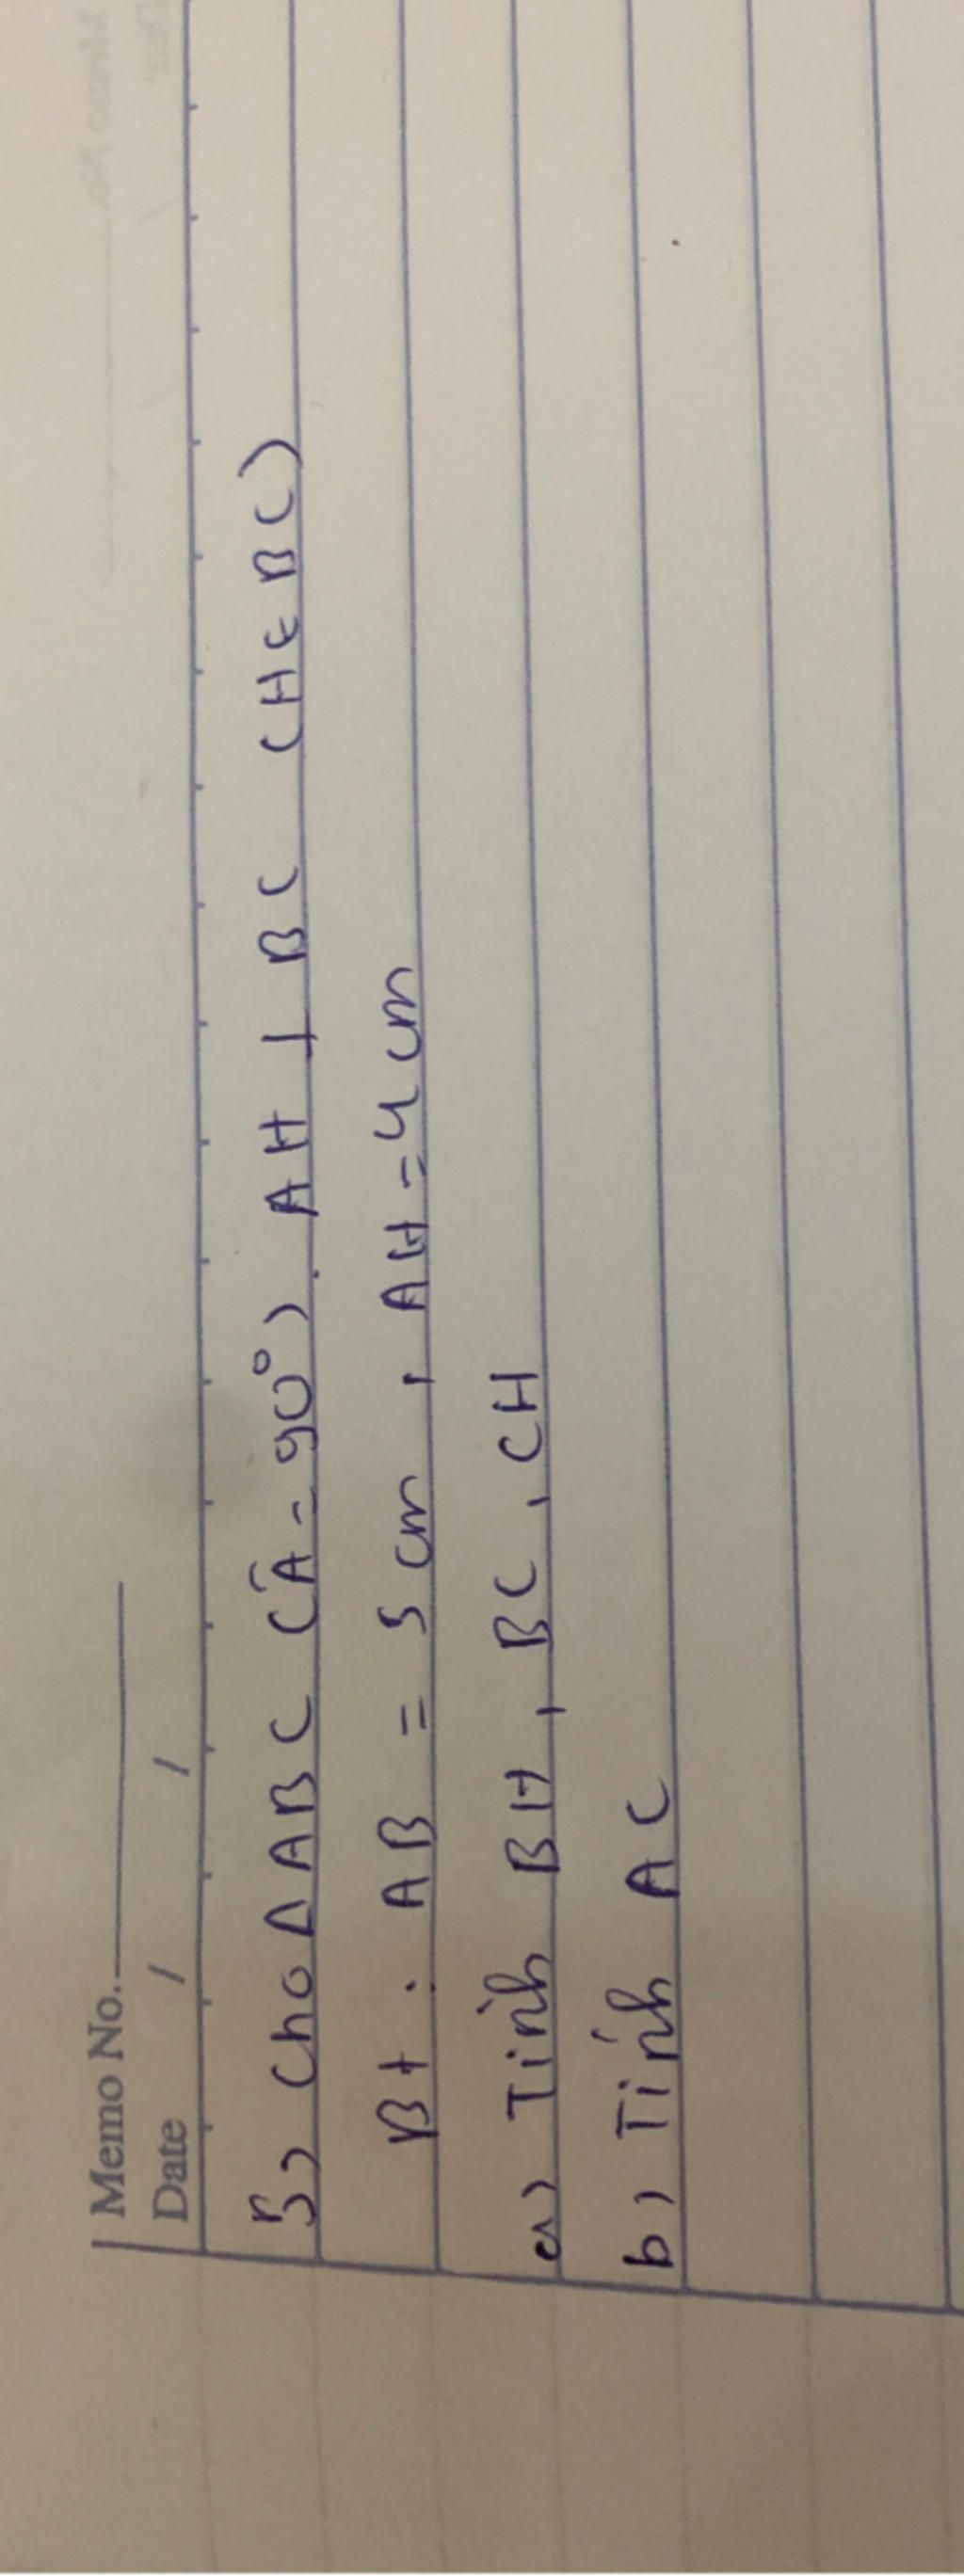 Memo No.
Date / /
5, Cho Δ ABC (Â = 90°). AH ⊥ BC (H ∈ BC)
Bt : AB = 5 cm , AH = 4 cm
a) Tính BH, BC, CH
b) Tính AC